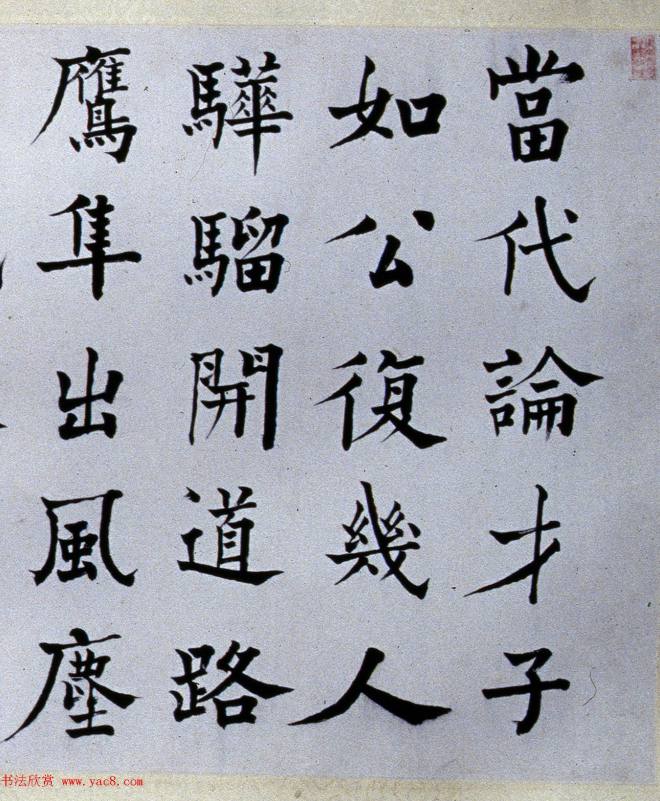 當代論才子
如公復幾人
驊騮開道路
鷹隼出風塵
书法欣赏 www.yac8.com